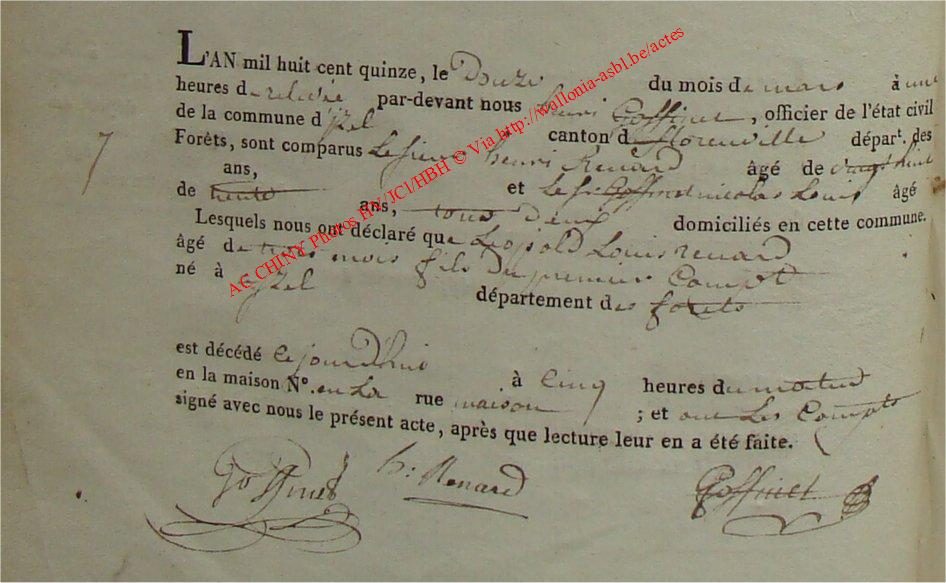 7
L'AN mil huit cent quinze, le Douze du mois de mars à une
heures de relevée par-devant nous henri Goffinet, officier de l'état civil
de la commune d'Izel canton de florenville départ. des
Forêts, sont comparus Le sieur henri Renard âgé de vingt huit
ans, et Le sr Goffinet nicolas Louis âgé
de trente ans, tous deux domiciliés en cette commune.
Lesquels nous ont déclaré que Leopold Louis renard
âgé de trois mois fils du premier Compt
né à Izel département des forets
est décédé cejourd'huy à Cinq heures du matin
en la maison N°. en La rue maison ; et ont Les Compts
signé avec nous le présent acte, après que lecture leur en a été faite.
Goffinet h: Renard Goffinet
AC CHINY Photos HV/JCI/HBH © Via http://wallonia-asbl.be/actes